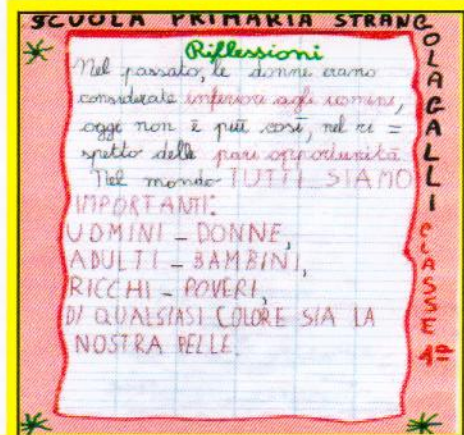 SCUOLA PRIMARIA STRANGOLAGALLI
CLASSE 4ª
Riflessioni
Nel passato, le donne erano
considerate inferiori agli uomini,
oggi non è più così, nel ri=
spetto delle pari opportunità.
Nel mondo TUTTI SIAMO
IMPORTANTI:
UOMINI - DONNE,
ADULTI - BAMBINI,
RICCHI - POVERI,
DI QUALSIASI COLORE SIA LA
NOSTRA PELLE.